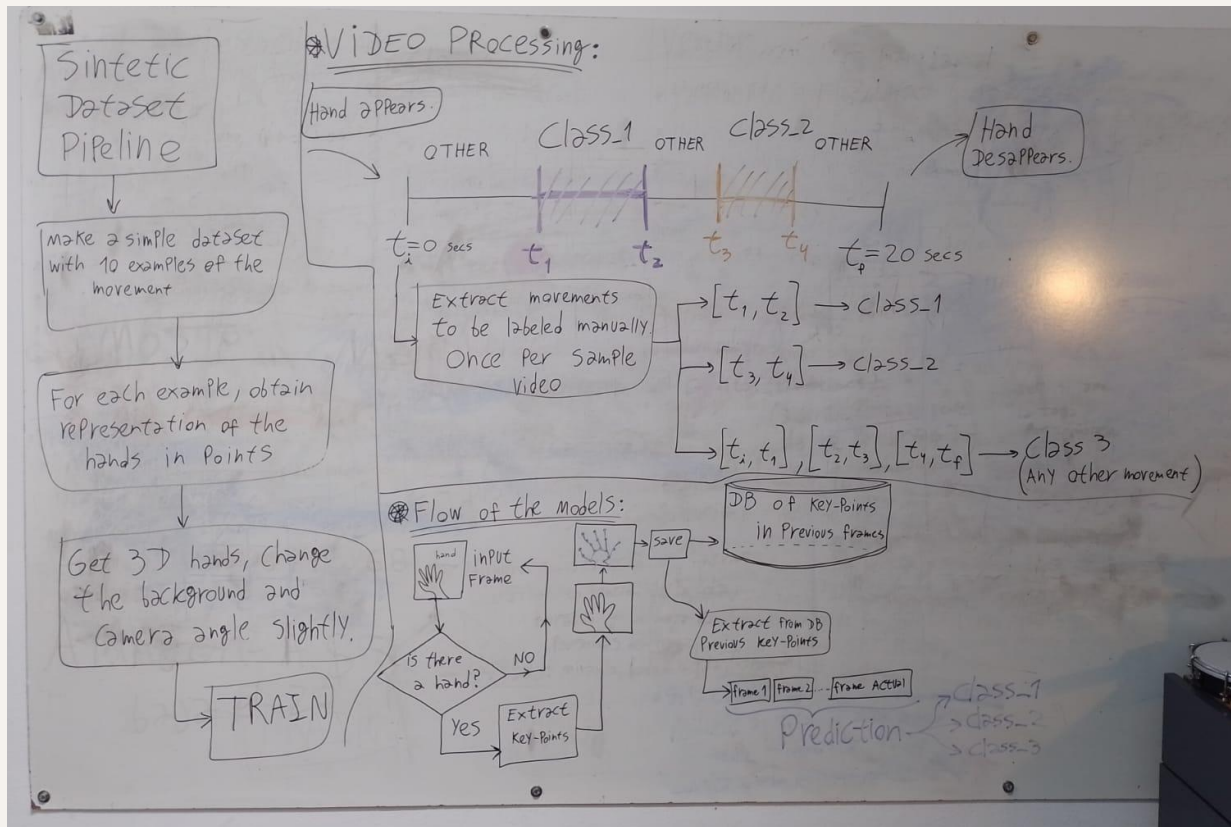 Sintetic
Dataset
Pipeline
Make a simple dataset
with 10 examples of the
movement
For each example, obtain
representation of the
hands in Points
Get 3D hands, Change
the background and
Camera angle slightly.
TRAIN
VIDEO PROCESSING:
Hand appears.
OTHER
Class_1
OTHER
Class_2
OTHER
Hand
Desappears.
tᵢ=0 secs
t₁
t₂
t₃
t₄
t_f=20 secs
Extract movements
to be labeled manually
Once Per Sample
Video
[t₁, t₂] → Class_1
[t₃, t₄] → Class_2
[tᵢ, t₁], [t₂, t₃], [t₄, t_f] → Class 3
(Any other movement)
Flow of the models:
hand
input
Frame
is there
a hand?
NO
Yes
Extract
Key-Points
save
DB of Key-Points
in Previous frames
Extract from DB
Previous Key-Points
frame 1 frame 2 ... frame Actual
Prediction
Class_1
Class_2
Class_3